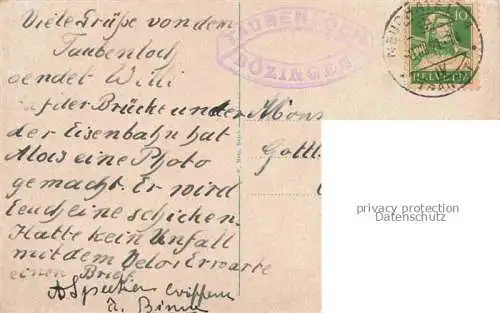 Viele Grüße von dem
Taubenloch
sendet Willi
Auf der Brücke under
der Eisenbahn hat
Alois eine Photo
gemacht. Er wird
Eeuch eine schicken.
Hatte kein Unfall
mit dem Velo. Erwarte
einen Brief
TAUBENLOCH
BÖZINGEN
10
HELVETIA
Mons
Gottl
privacy protection
Datenschutz